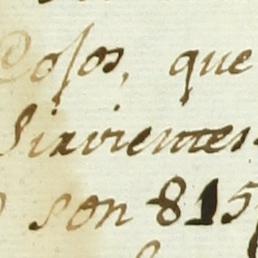 Cosos, que
Sirvientes.
son 815